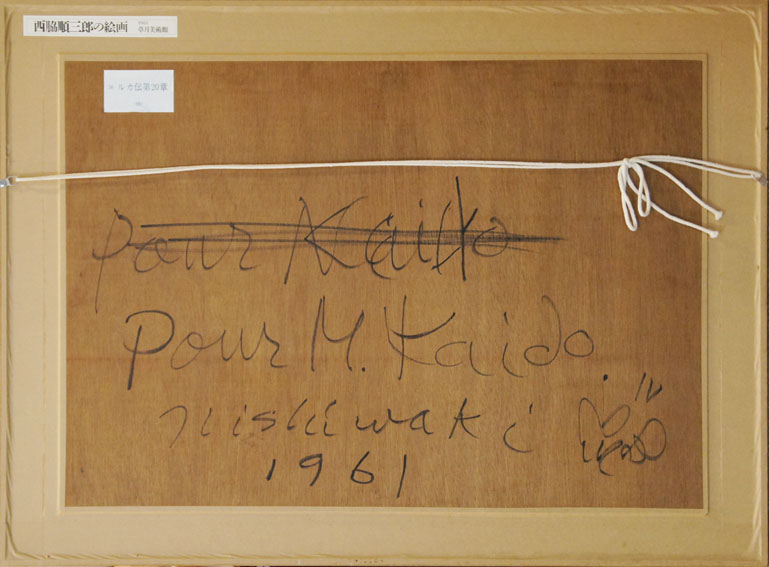 西脇順三郎の絵画
草月美術館
ルカ伝第20章
Pour Kaido
Pour M. Kaido.
Nishiwaki
1961